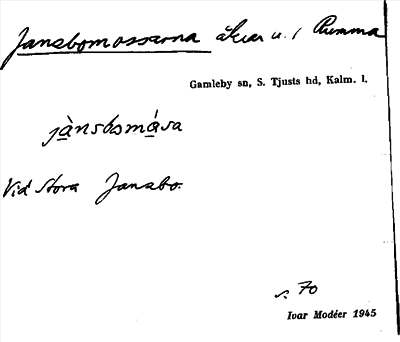 Jansbomossarna åkrar u. / Rumma
Gamleby sn, S. Tjusts hd, Kalm. l.
jànsbomå̀sa
Vid Stora Jansbo.
s. 70
Ivar Modéer 1945